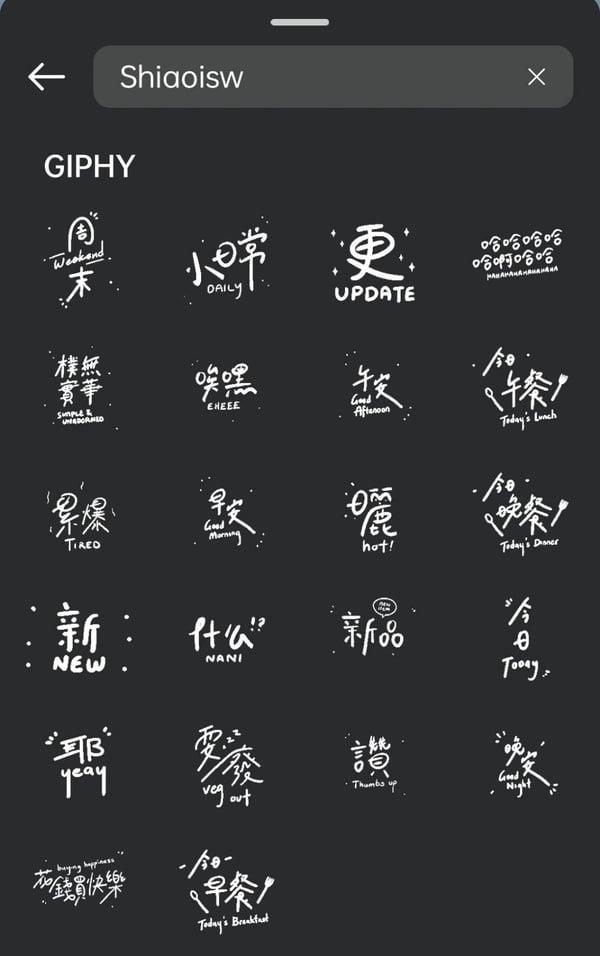 Shiaoisw
GIPHY
周
Weekend
末
小日常
DAILY
更
UPDATE
哈哈哈哈
哈啊哈哈哈
HAHAHAHAHAHAHAHA
樸無
實華
SIMPLE &
UNADORNED
唉嘿
EHEEE
午安
Good
Afternoon
今日
午餐
Today's Lunch
累爆
TIRED
早安
Good
Morning
曬
hot!
今日
晚餐
Today's Dinner
新
NEW
什么!?
NANI
NEW
ITEM
新品
今
日
Today
耶
yeay
耍zz
廢
veg out
讚
Thumbs up
晚安
Good
Night
buying happiness
花錢買快樂
今日
早餐
Today's Breakfast